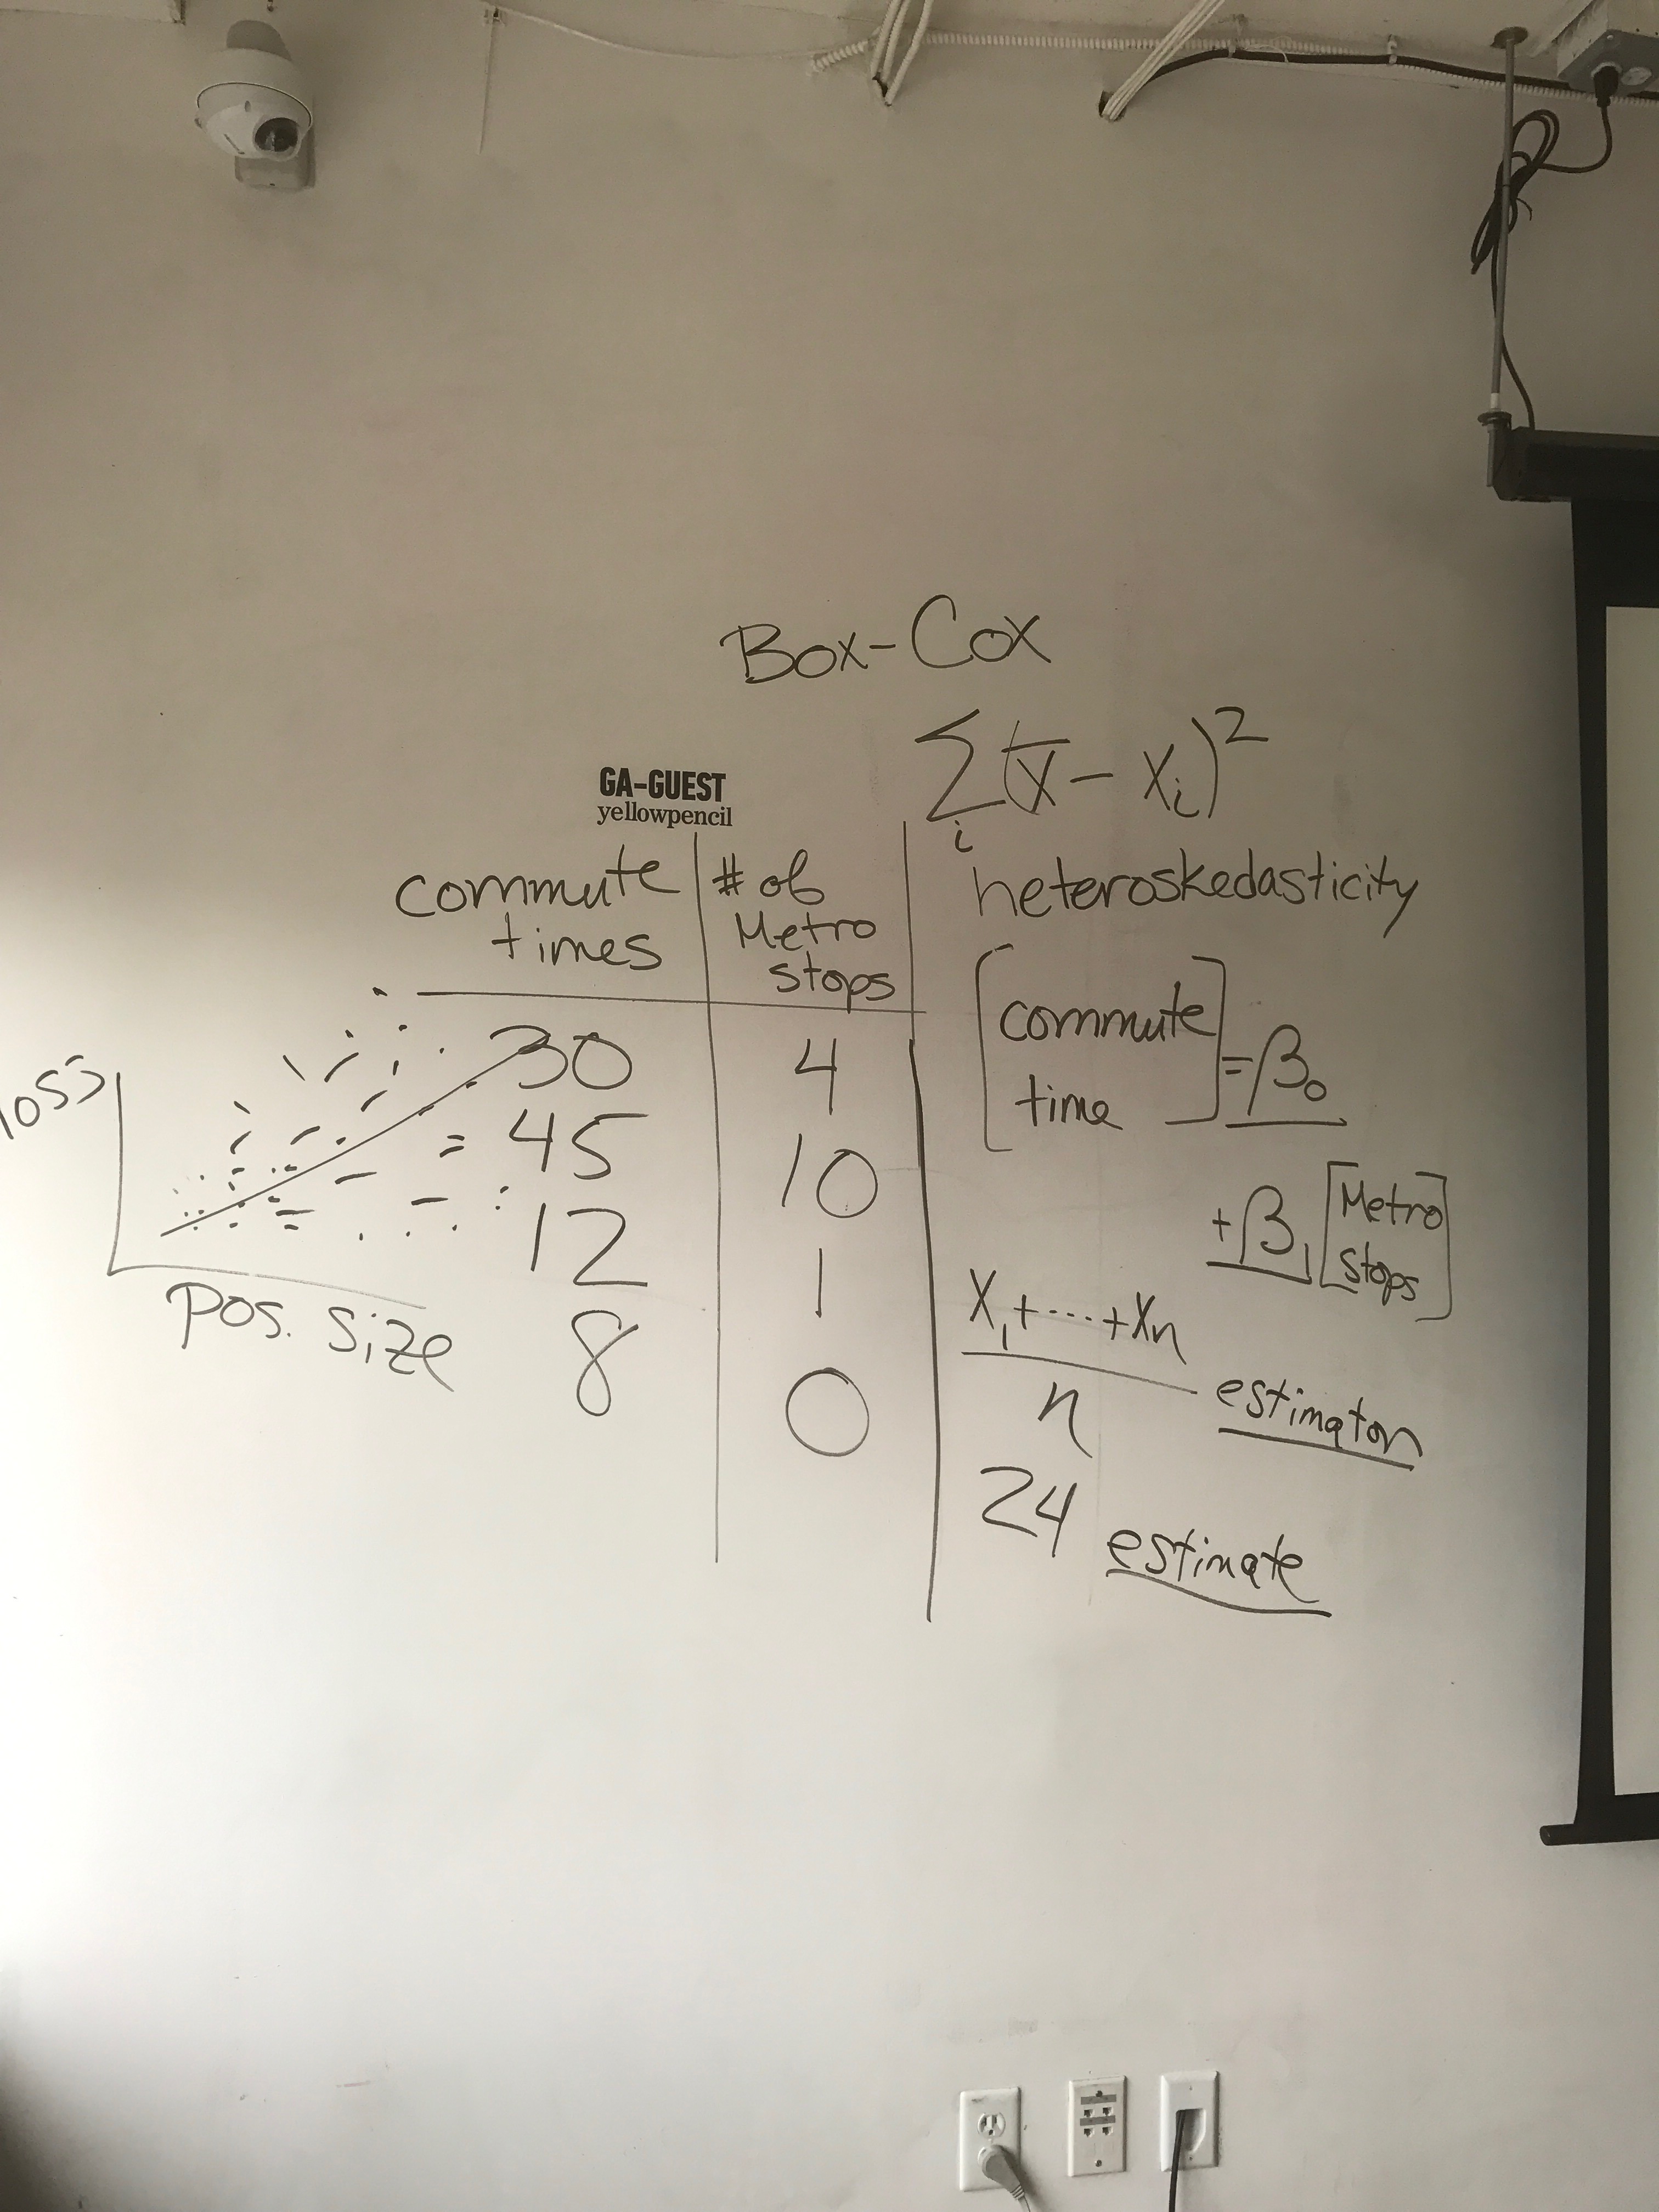 Box-Cox
∑ (x̄ - xᵢ)²
i
GA-GUEST
yellowpencil
commute
times
# of
Metro
stops
30 4
45 10
12 1
8 0
loss
pos. size
heteroskedasticity
[commute
time] = β₀
+ β₁ [Metro
stops]
X₁ + ... + Xn
n
estimator
24 estimate